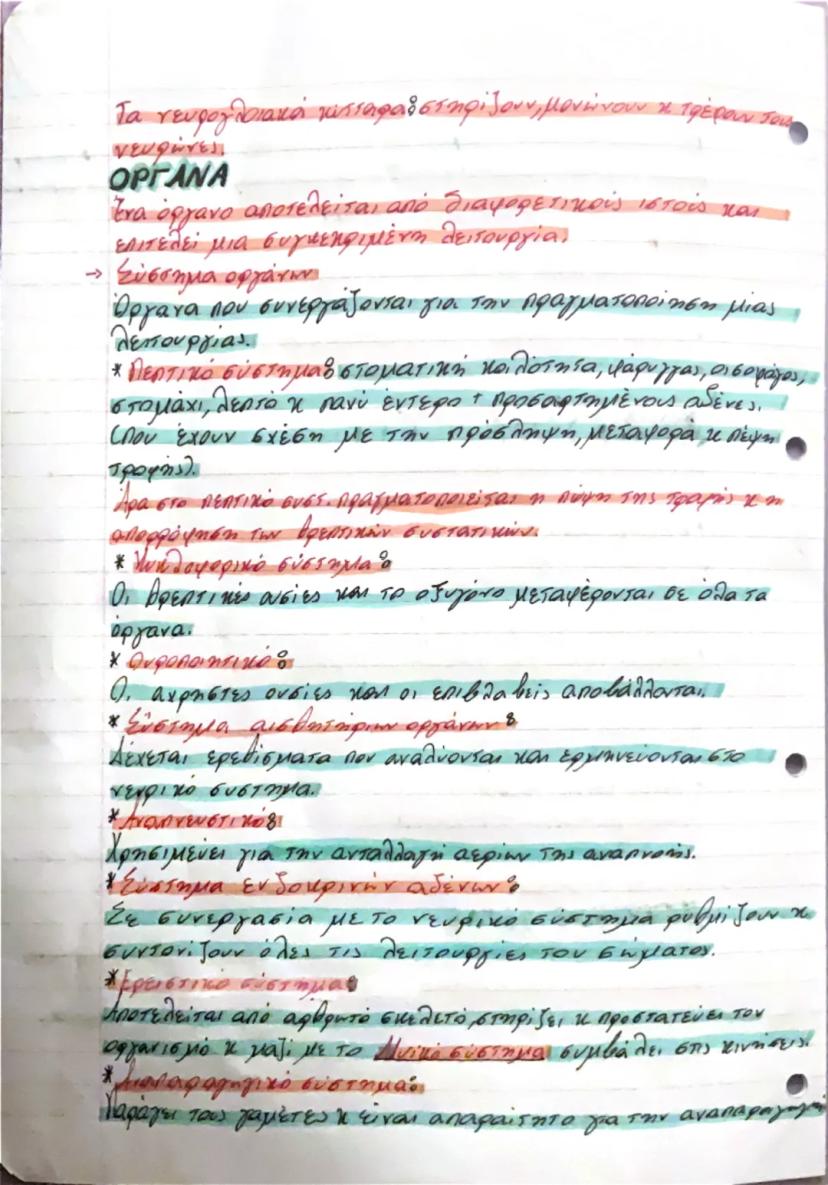 Τα νευρογλοιακά κύτταρα: στηρίζουν, μονώνουν κ τρέφουν τους
νευρώνες.
ΟΡΓΑΝΑ
Ένα όργανο αποτελείται από διαφορετικούς ιστούς και
επιτελεί μια συγκεκριμένη λειτουργία.
→ Σύστημα οργάνων
Όργανα που συνεργάζονται για την πραγματοποίηση μιας
λειτουργίας.
* Πεπτικό σύστημα: στοματική κοιλότητα, φάρυγγας, οισοφάγος,
στομάχι, λεπτό κ παχύ έντερο + προσαρτημένους αδένες.
(που έχουν σχέση με την πρόσληψη, μεταφορά κ πέψη
τροφής).
Άρα στο πεπτικό συστ. πραγματοποιείται η πέψη της τροφής κ η
απορρόφηση των θρεπτικών συστατικών.
* Κυκλοφορικό σύστημα:
Οι θρεπτικές ουσίες και το οξυγόνο μεταφέρονται σε όλα τα
όργανα.
* Ουροποιητικό:
Οι άχρηστες ουσίες και οι επιβλαβείς αποβάλλονται.
* Σύστημα αισθητήριων οργάνων:
Δέχεται ερεθίσματα που αναλύονται και ερμηνεύονται στο
νευρικό σύστημα.
* Αναπνευστικό:
Χρησιμεύει για την ανταλλαγή αερίων της αναπνοής.
* Σύστημα ενδοκρινών αδένων:
Σε συνεργασία με το νευρικό σύστημα ρυθμίζουν κ
συντονίζουν όλες τις λειτουργίες του σώματος.
* Ερειστικό σύστημα:
Αποτελείται από αρθρωτό σκελετό, στηρίζει κ προστατεύει τον
οργανισμό κ μαζί με το Μυϊκό σύστημα συμβάλει στις κινήσεις.
* Αναπαραγωγικό σύστημα:
Παράγει τους γαμέτες κ είναι απαραίτητο για την αναπαραγωγή